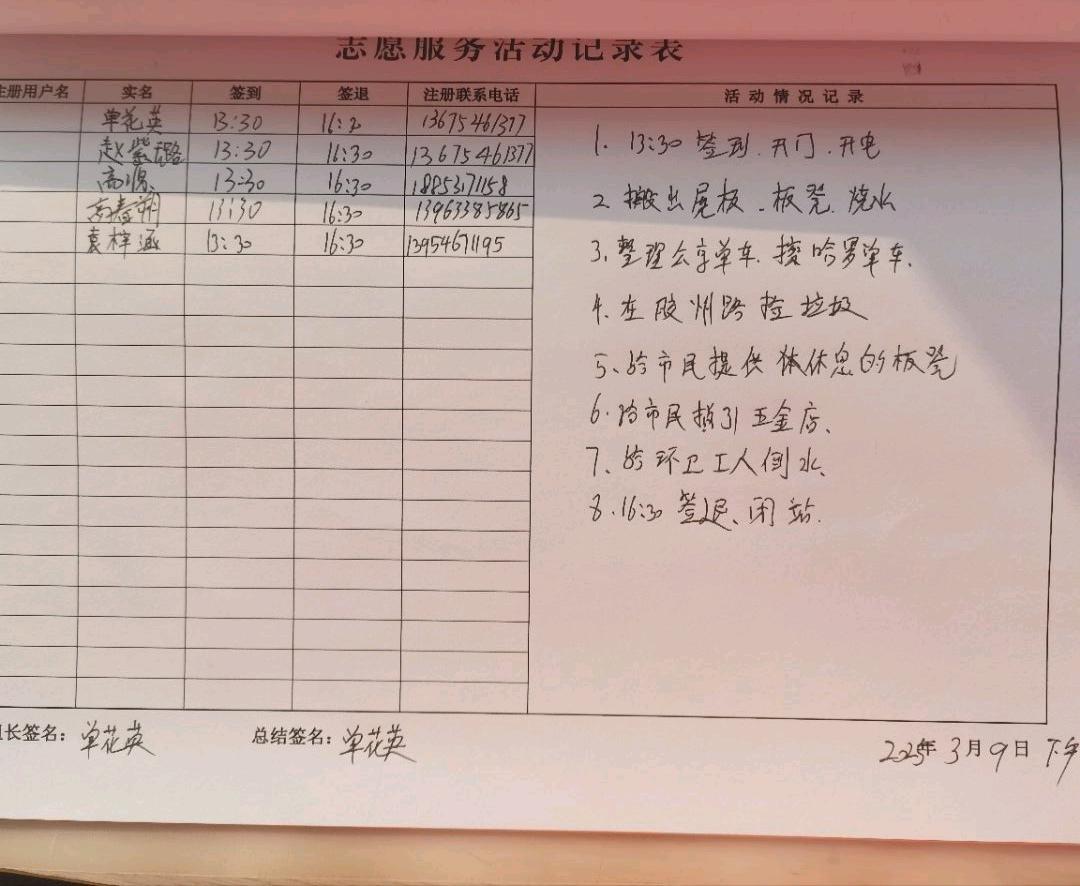 志愿服务活动记录表
注册用户名 实名 签到 签退 注册联系电话 活动情况记录
单花英 13:30 16:2 13675461377
赵紫璐 13:30 16:30 13675461377
高 13:30 16:30 18853171158
高春 13:30 16:30 13963385865
袁梓涵 13:30 16:30 13954671195
1. 13:30 签到.开门.开电
2 搬出展板.板凳.烧水
3.整理公享单车.摆哈罗单车.
4.在胶州路捡垃圾
5、给市民提供休息的板凳
6.给市民指引五金店、
7、给环卫工人倒水、
8.16:30 签退、闭站.
组长签名：单花英 总结签名：单花英
2025年3月9日下午